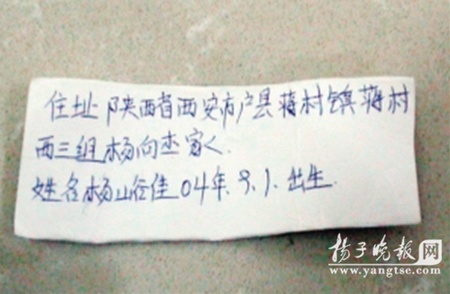 住址 陕西省西安市户县蒋村镇蒋村
西三组杨向 家人.
姓名杨 佳 04年.9.1.出生.
扬子晚报网
www.yangtse.com